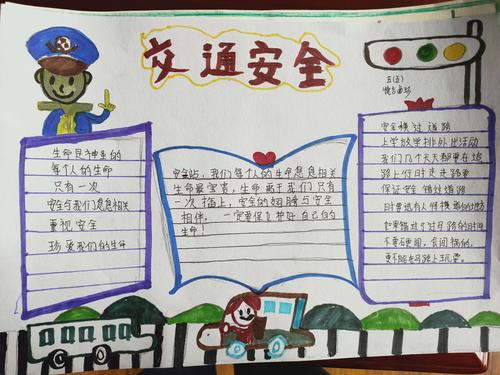 交通安全
五(五)
生命是神圣的
每个人的生命
只有一次
安全与我们息息相关
重视安全
珍爱我们的生命
安全站,我们每个人的生命息息相关
生命最宝贵,生命 我们只有
一次 插上,安全的翅膀与安全
相伴, 一定要保护好自己的
生命!
安全横过道路
上学放学排外出活动
我们几乎天天都要在
路上行时走走路要
保证安全 错过道路
时要选有人行横道的地方
如果错过了过马路的时间
不要硬闯,贪闯
更不能马路上玩耍。